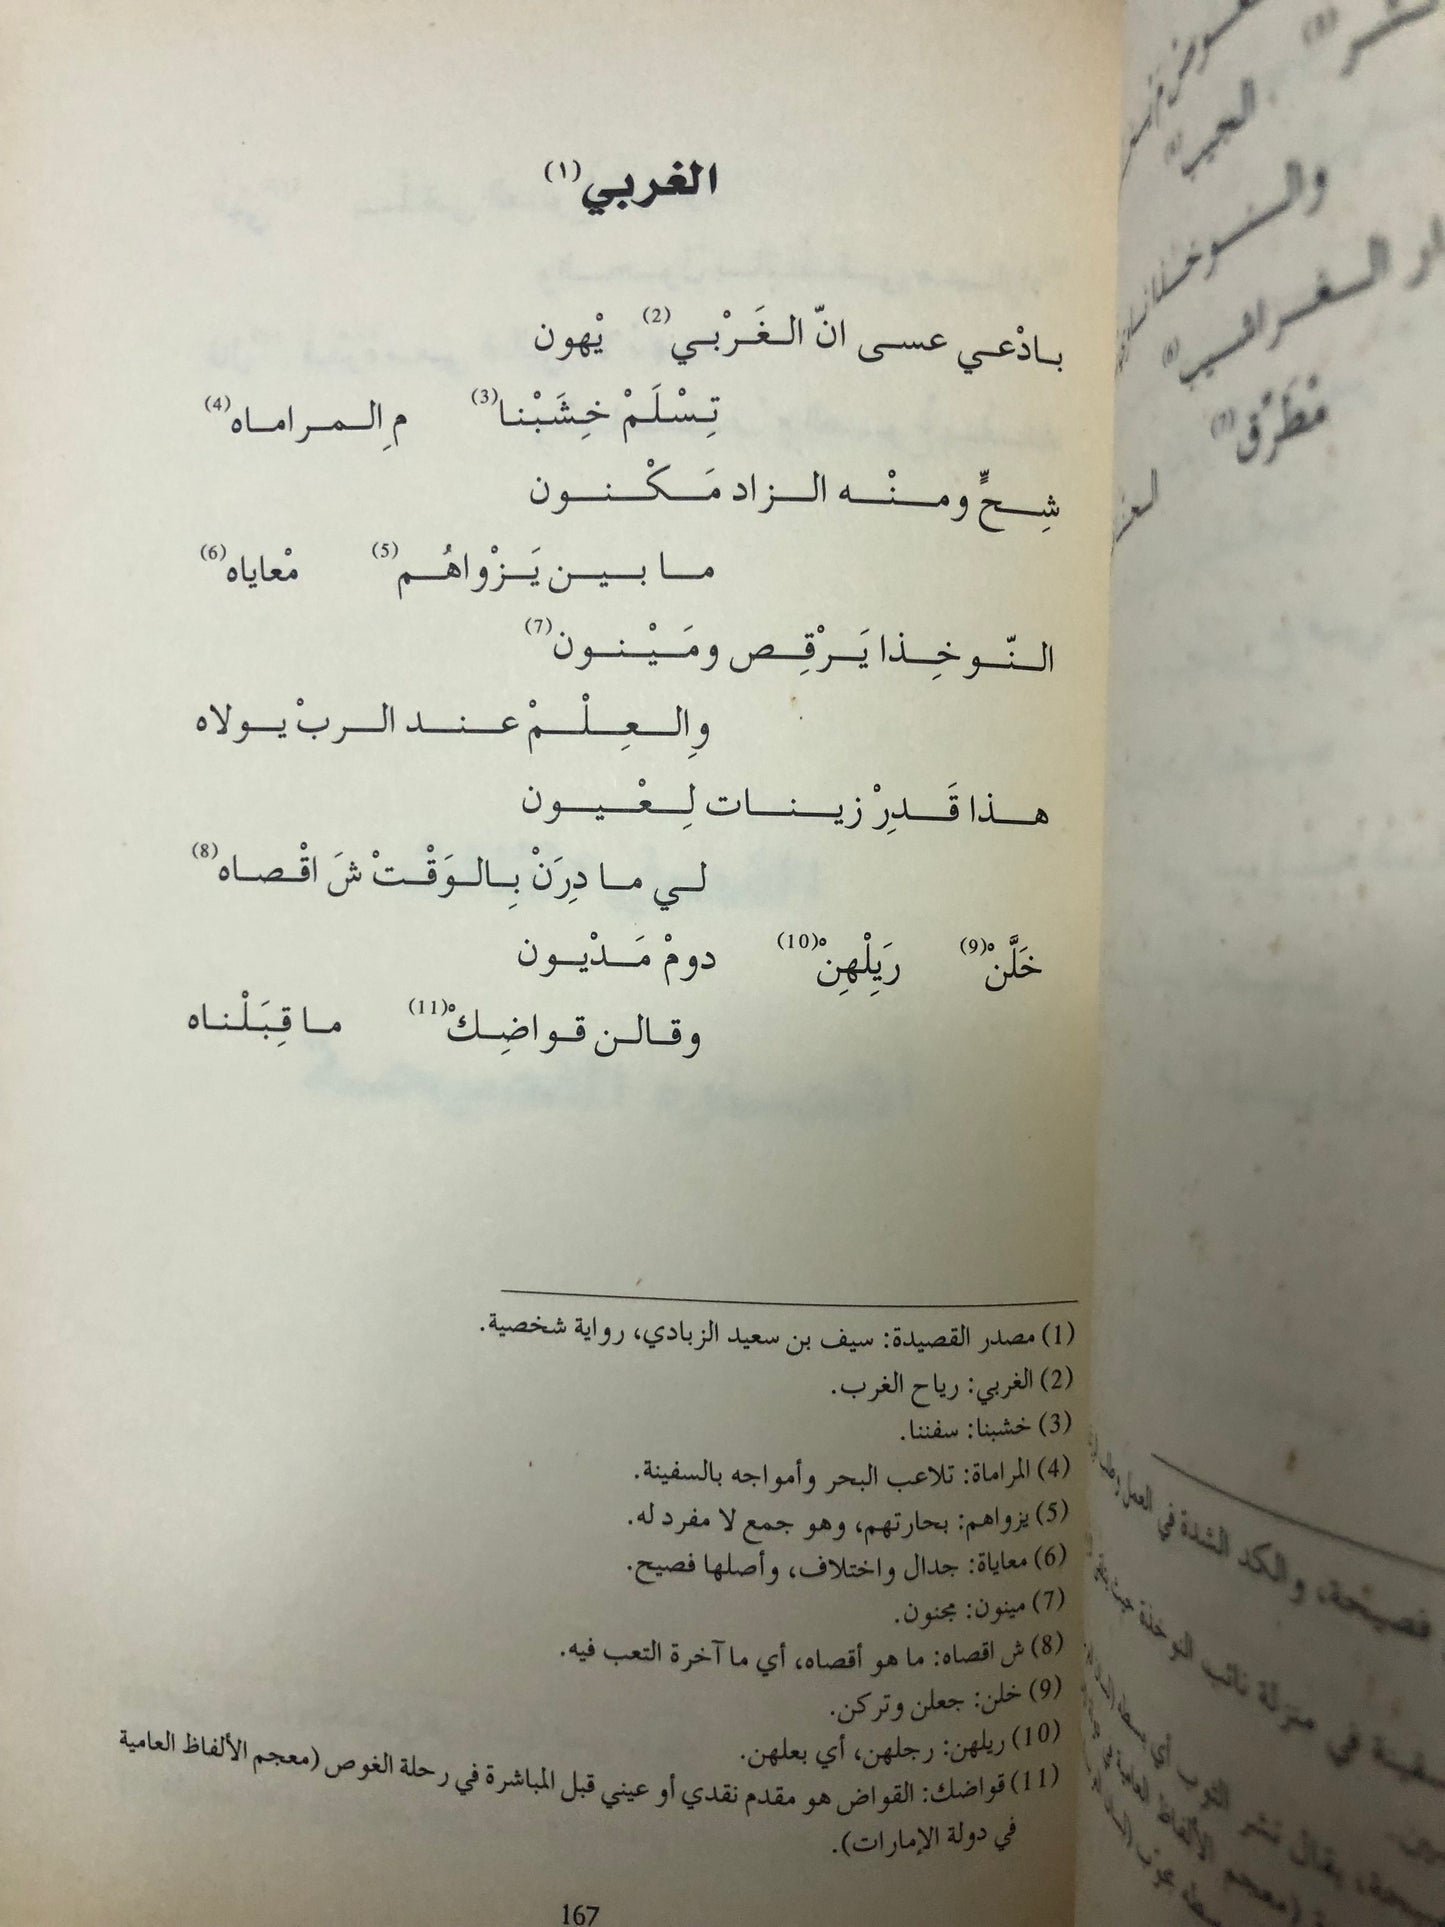 الغربي(١)
بادْعي عسى انّ الغَرْبي(2) يْهون
تِسْلَمْ خِشَبْنا(3) مِ المراماه(4)
شِحٍّ ومنْه الزاد مَكْنون
ما بين يَزْواهُم(5) مْعاياه(6)
النّوخِذا يَرْقِص ومَيْنون(7)
وِالعِلْمْ عند الربْ يولاه
هذا قَدِرْ زينات لِعْيون
لي ما دِرَنْ بِالوَقْتْ شَ اقْصاه(8)
خَلَّنْ(9) رَيِلْهِنْ(10) دومْ مَدْيون
وقالن قواضِكْ(11) ما قِبَلْناه
(1) مصدر القصيدة: سيف بن سعيد الزبادي، رواية شخصية.
(2) الغربي: رياح الغرب.
(3) خشبنا: سفننا.
(4) المراماة: تلاعب البحر وأمواجه بالسفينة.
(5) يزواهم: بحارتهم، وهو جمع لا مفرد له.
(6) معاياة: جدال واختلاف، وأصلها فصيح.
(7) مينون: مجنون.
(8) ش اقصاه: ما هو أقصاه، أي ما آخرة التعب فيه.
(9) خلن: جعلن وتركن.
(10) ريلهن: رجلهن، أي بعلهن.
(11) قواضك: القواض هو مقدم نقدي أو عيني قبل المباشرة في رحلة الغوص (معجم الألفاظ العامية
في دولة الإمارات).
167
مْطَرّق(7)